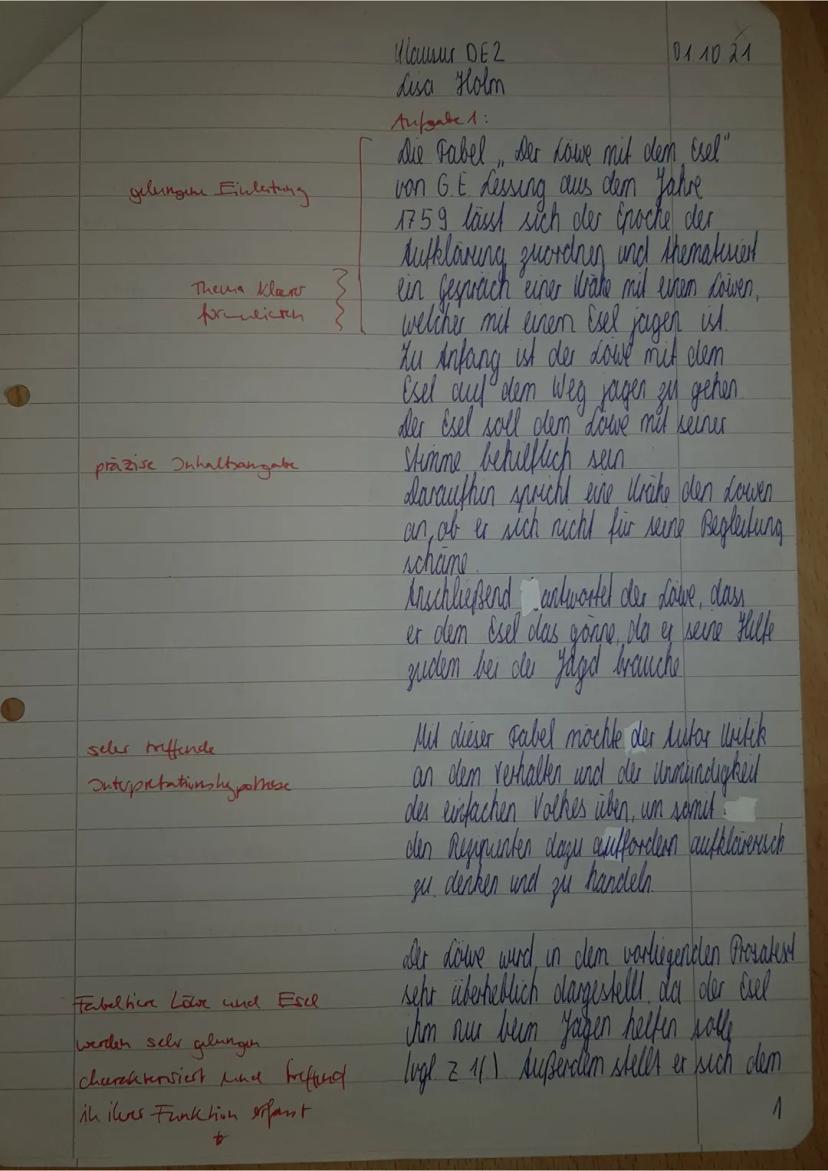 Klausur DE2 01.10.21
Lisa Holm
Aufgabe 1:
Die Fabel „Der Löwe mit dem Esel"
gelungene Einleitung
von G.E. Lessing aus dem Jahre
1759 lässt sich der Epoche der
Aufklärung zuordnen und thematisiert
Thema klarer
ein Gespräch einer Krähe mit einem Löwen,
formulieren
welcher mit einem Esel jagen ist.
Zu Anfang ist der Löwe mit dem
Esel auf dem Weg jagen zu gehen.
Der Esel soll dem Löwe mit seiner
präzise Inhaltsangabe
Stimme behilflich sein.
Daraufhin spricht eine Krähe den Löwen
an, ob er sich nicht für seine Begleitung
schäme.
Anschließend antwortet der Löwe, dass
er dem Esel das gönne, da er seine Hilfe
zudem bei der Jagd brauche.
sehr treffende
Mit dieser Fabel möchte der Autor Kritik
Interpretationshypothese
an dem Verhalten und der Unmündigkeit
des einfachen Volkes üben, um somit
den Rezipienten dazu auffordern aufklärerisch
zu denken und zu handeln.
Der Löwe wird in dem vorliegenden Prosatext
Fabeltiere Löwe und Esel
sehr überheblich dargestellt, da der Esel
werden sehr gelungen
ihm nur beim Jagen helfen solle
charakterisiert und treffend
(vgl. Z. 1f.). Außerdem stellt er sich dem
in ihrer Funktion erfasst
1